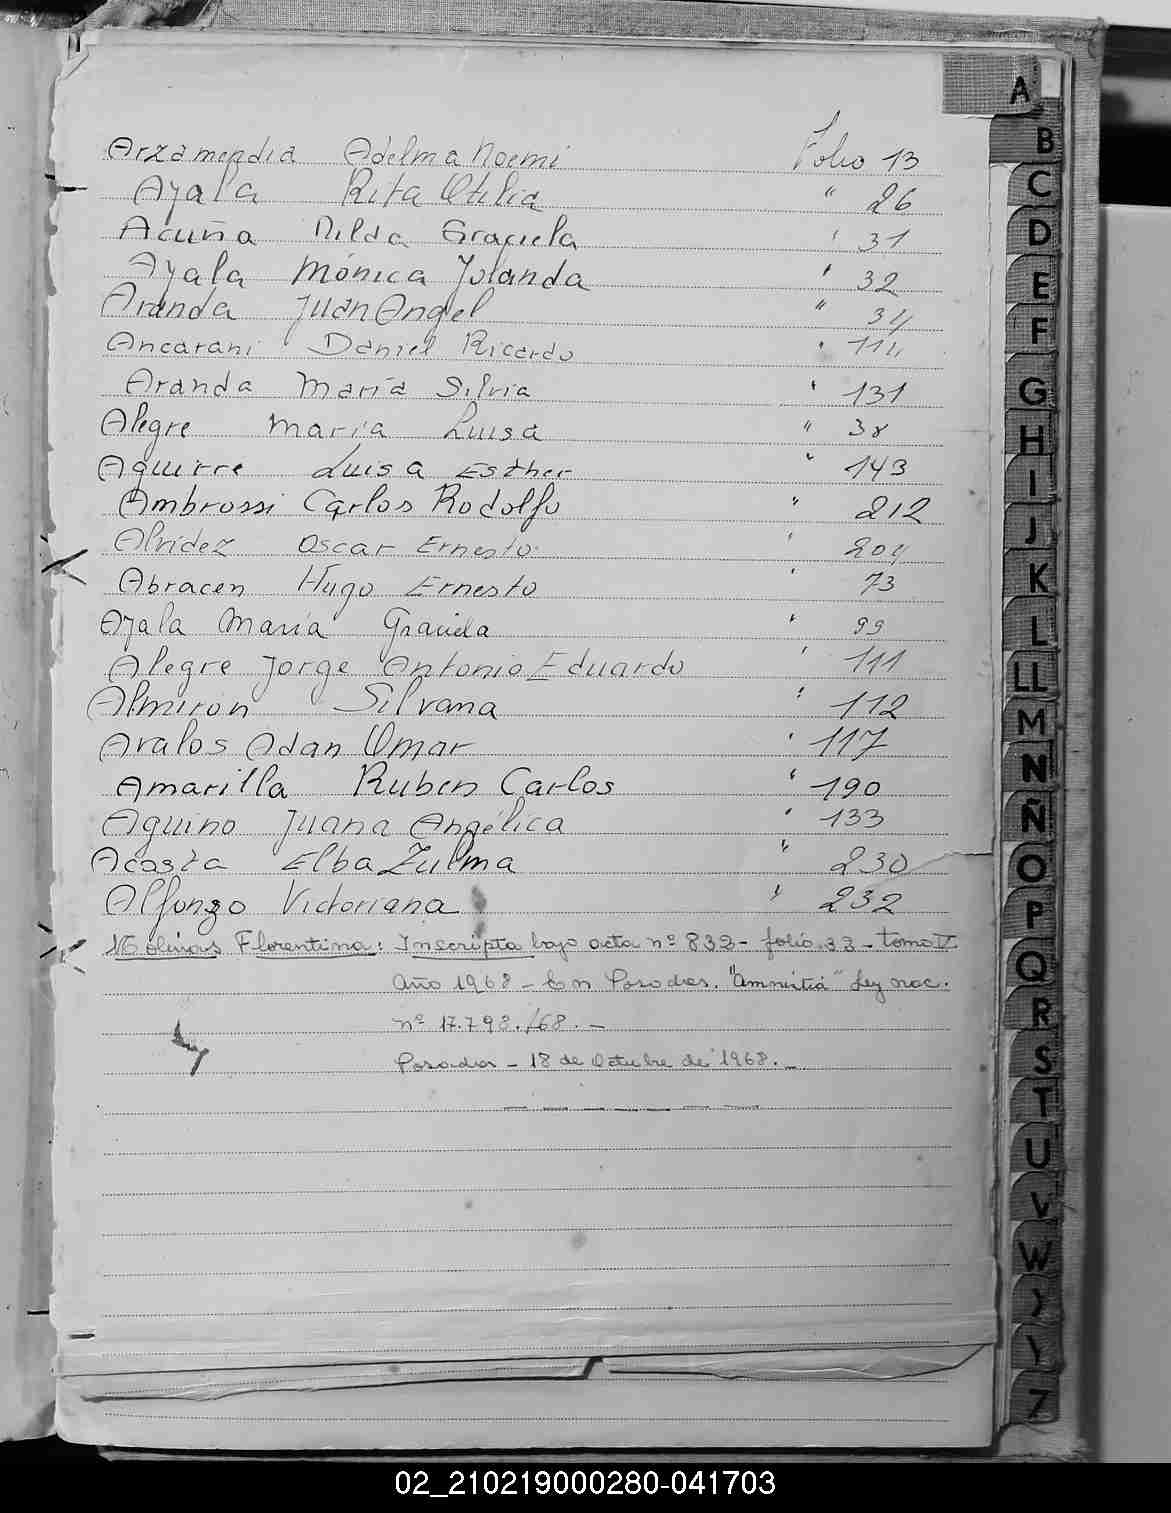 A
Arzamendia Adelma Noemi Folio 13
Ayala Rita Otilia " 26
Acuña Nilda Graciela " 31
Ayala Mónica Yolanda " 32
Aranda Juan Angel " 34
Ancarani Daniel Ricardo " 114
Aranda María Silvia " 131
Alegre María Luisa " 38
Aguirre Luisa Esther " 143
Ambrossi Carlos Rodolfo " 212
Alvidez Oscar Ernesto " 204
Abracen Hugo Ernesto " 73
Ayala María Graciela " 99
Alegre Jorge Antonio Eduardo " 111
Almiron Silvana " 112
Avalos Adan Omar " 117
Amarilla Ruben Carlos " 190
Aquino Juana Angélica " 133
Acosta Elba Zulma " 230
Alfonzo Victoriana " 232
Molinas Florentina: Inscripta bajo acta nº 832- folio 33- tomo V
Año 1968 - En Posadas. "Amnistia" Ley nac.
nº 17.798./68. -
Posadas - 18 de Octubre de 1968. -
B
C
D
E
F
G
H
I
J
K
L
LL
M
N
Ñ
O
P
Q
R
S
T
U
V
W
X
Y
Z
02_210219000280-041703